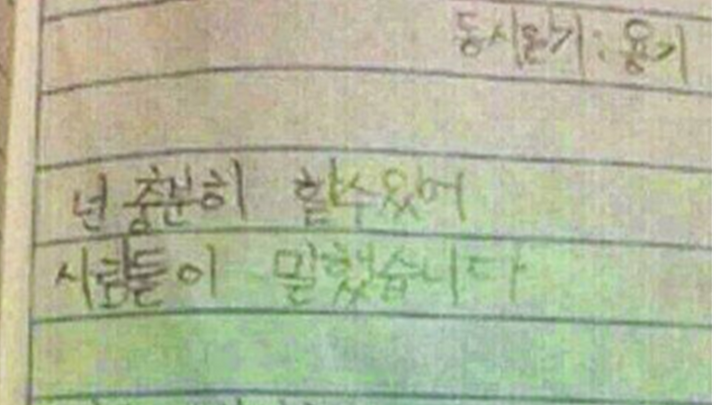 동시쓰기 : 용기
넌 충분히 할수있어
사람들이 말했습니다